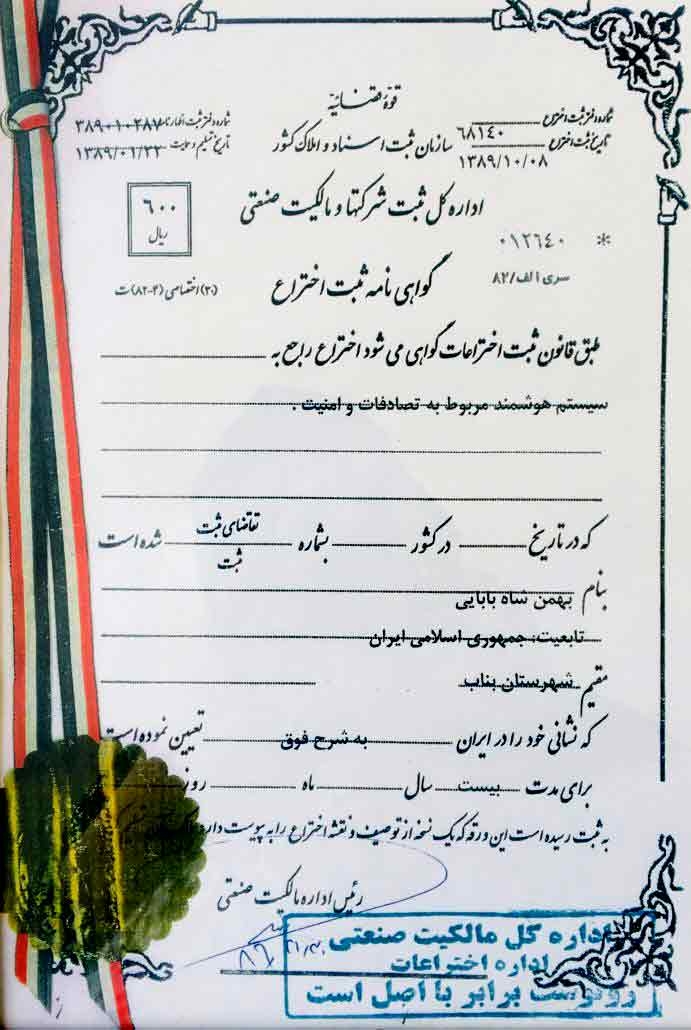 قوه قضائیه
شماره دفتر ثبت اختراع ۶۸۱۴۰
تاریخ ثبت اختراع ۱۳۸۹/۱۰/۰۸
سازمان ثبت اسناد و املاک کشور
شماره دفتر ثبت اظهارنامه ۳۸۹۰۱۰۲۸۷
تاریخ تسلیم و حمایت ۱۳۸۹/۰۱/۲۲
اداره کل ثبت شرکتها و مالکیت صنعتی
۶۰۰
ریال
* ۰۱۲۶۴۰
سری الف/۸۲
گواهی نامه ثبت اختراع
(۳۰) اختصاصی (۴-۸۲) ت
طبق قانون ثبت اختراعات گواهی می شود اختراع راجع به
سیستم هوشمند مربوط به تصادفات و امنیت .
که در تاریخ در کشور بشماره تقاضای ثبت شده است
ثبت
بنام بهمن شاه بابایی
تابعیت: جمهوری اسلامی ایران
مقیم شهرستان بناب
که نشانی خود را در ایران به شرح فوق تعیین نموده است
برای مدت بیست سال ماه روز
به ثبت رسیده است این ورقه که یک نسخه از توصیف و نقشه اختراع را به پیوست دارد
رئیس اداره مالکیت صنعتی
اداره کل مالکیت صنعتی
اداره اختراعات
رونوشت برابر با اصل است